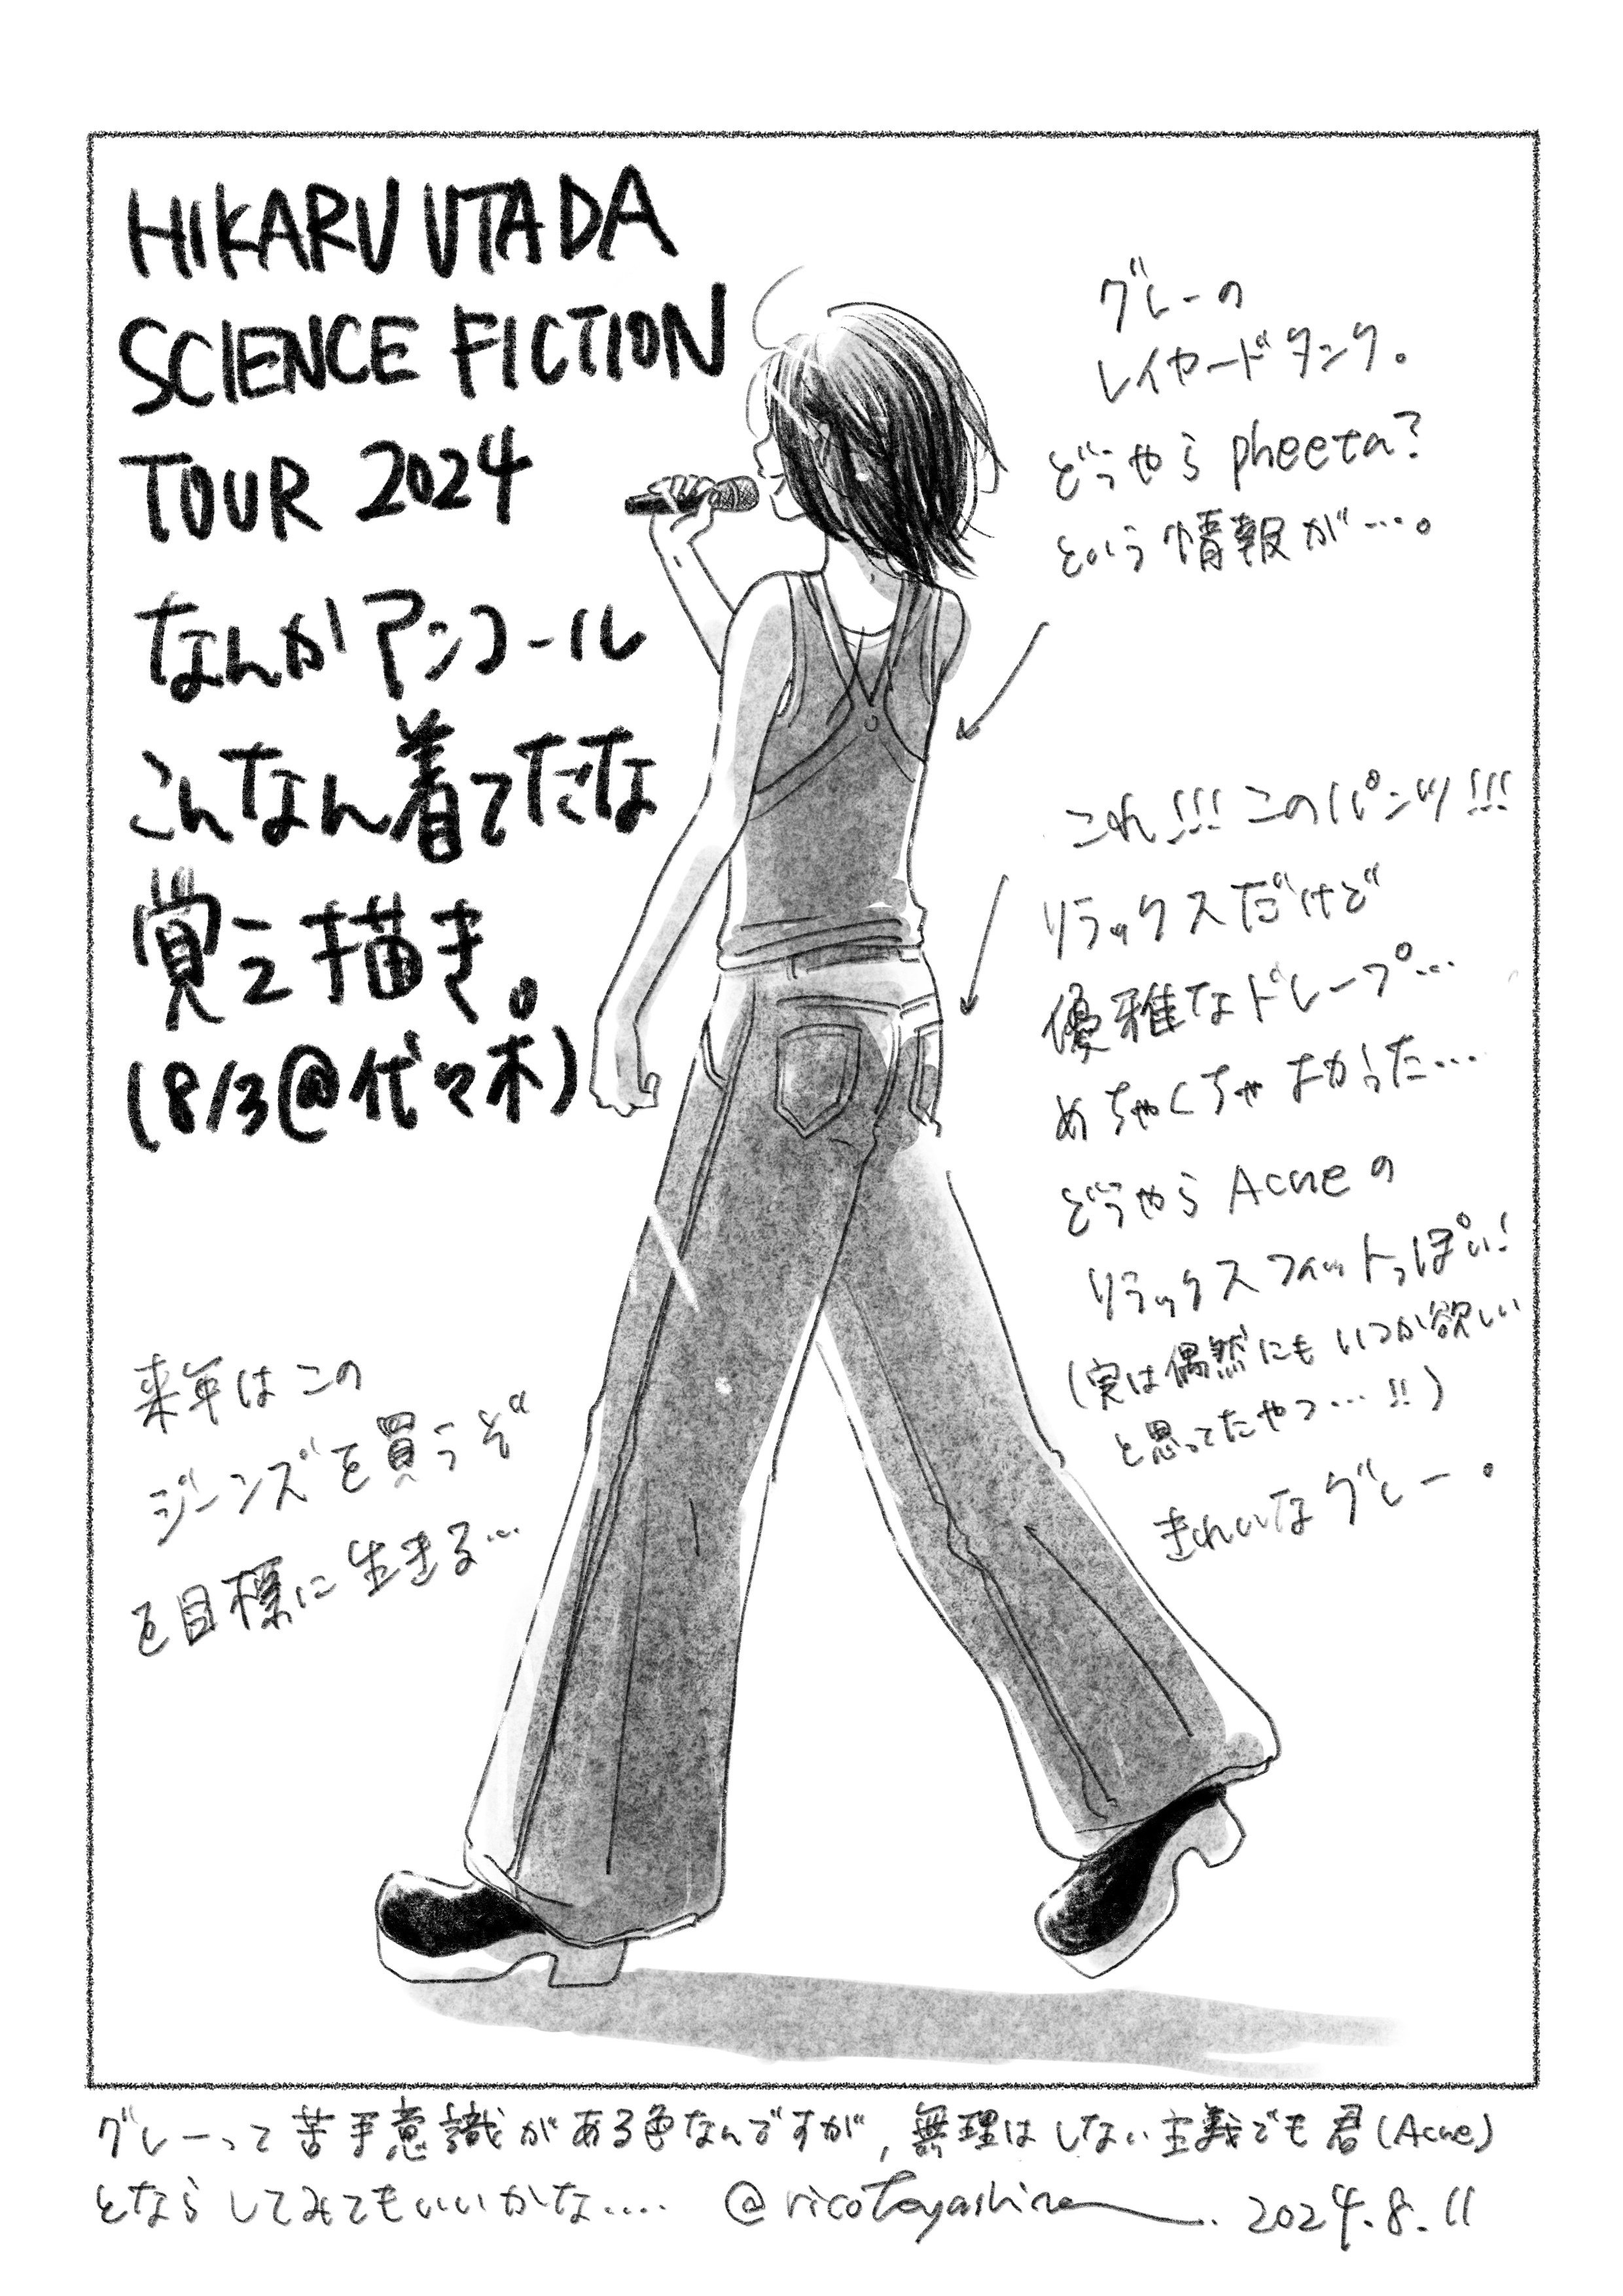 HIKARU UTADA
SCIENCE FICTION
TOUR 2024
なんかアンコール
こんなん着てたな
覚え描き。
(8/3@代々木)
グレーの
レイヤードタンク。
どうやらpheeta?
という情報が…。
これ!!!このパンツ!!!
リラックスだけど
優雅なドレープ…
めちゃくちゃよかった…
どうやらAcneの
リラックスフィットっぽい!
(実は偶然にもいつか欲しい
と思ってたやつ…!!)
きれいなグレー。
来年はこの
ジーンズを買うぞ
を目標に生きる…
グレーって苦手意識がある色なんですが,無理はしない主義でも君(Acne)
とならしてみてもいいかな.... @ricotoyashima. 2024.8.11